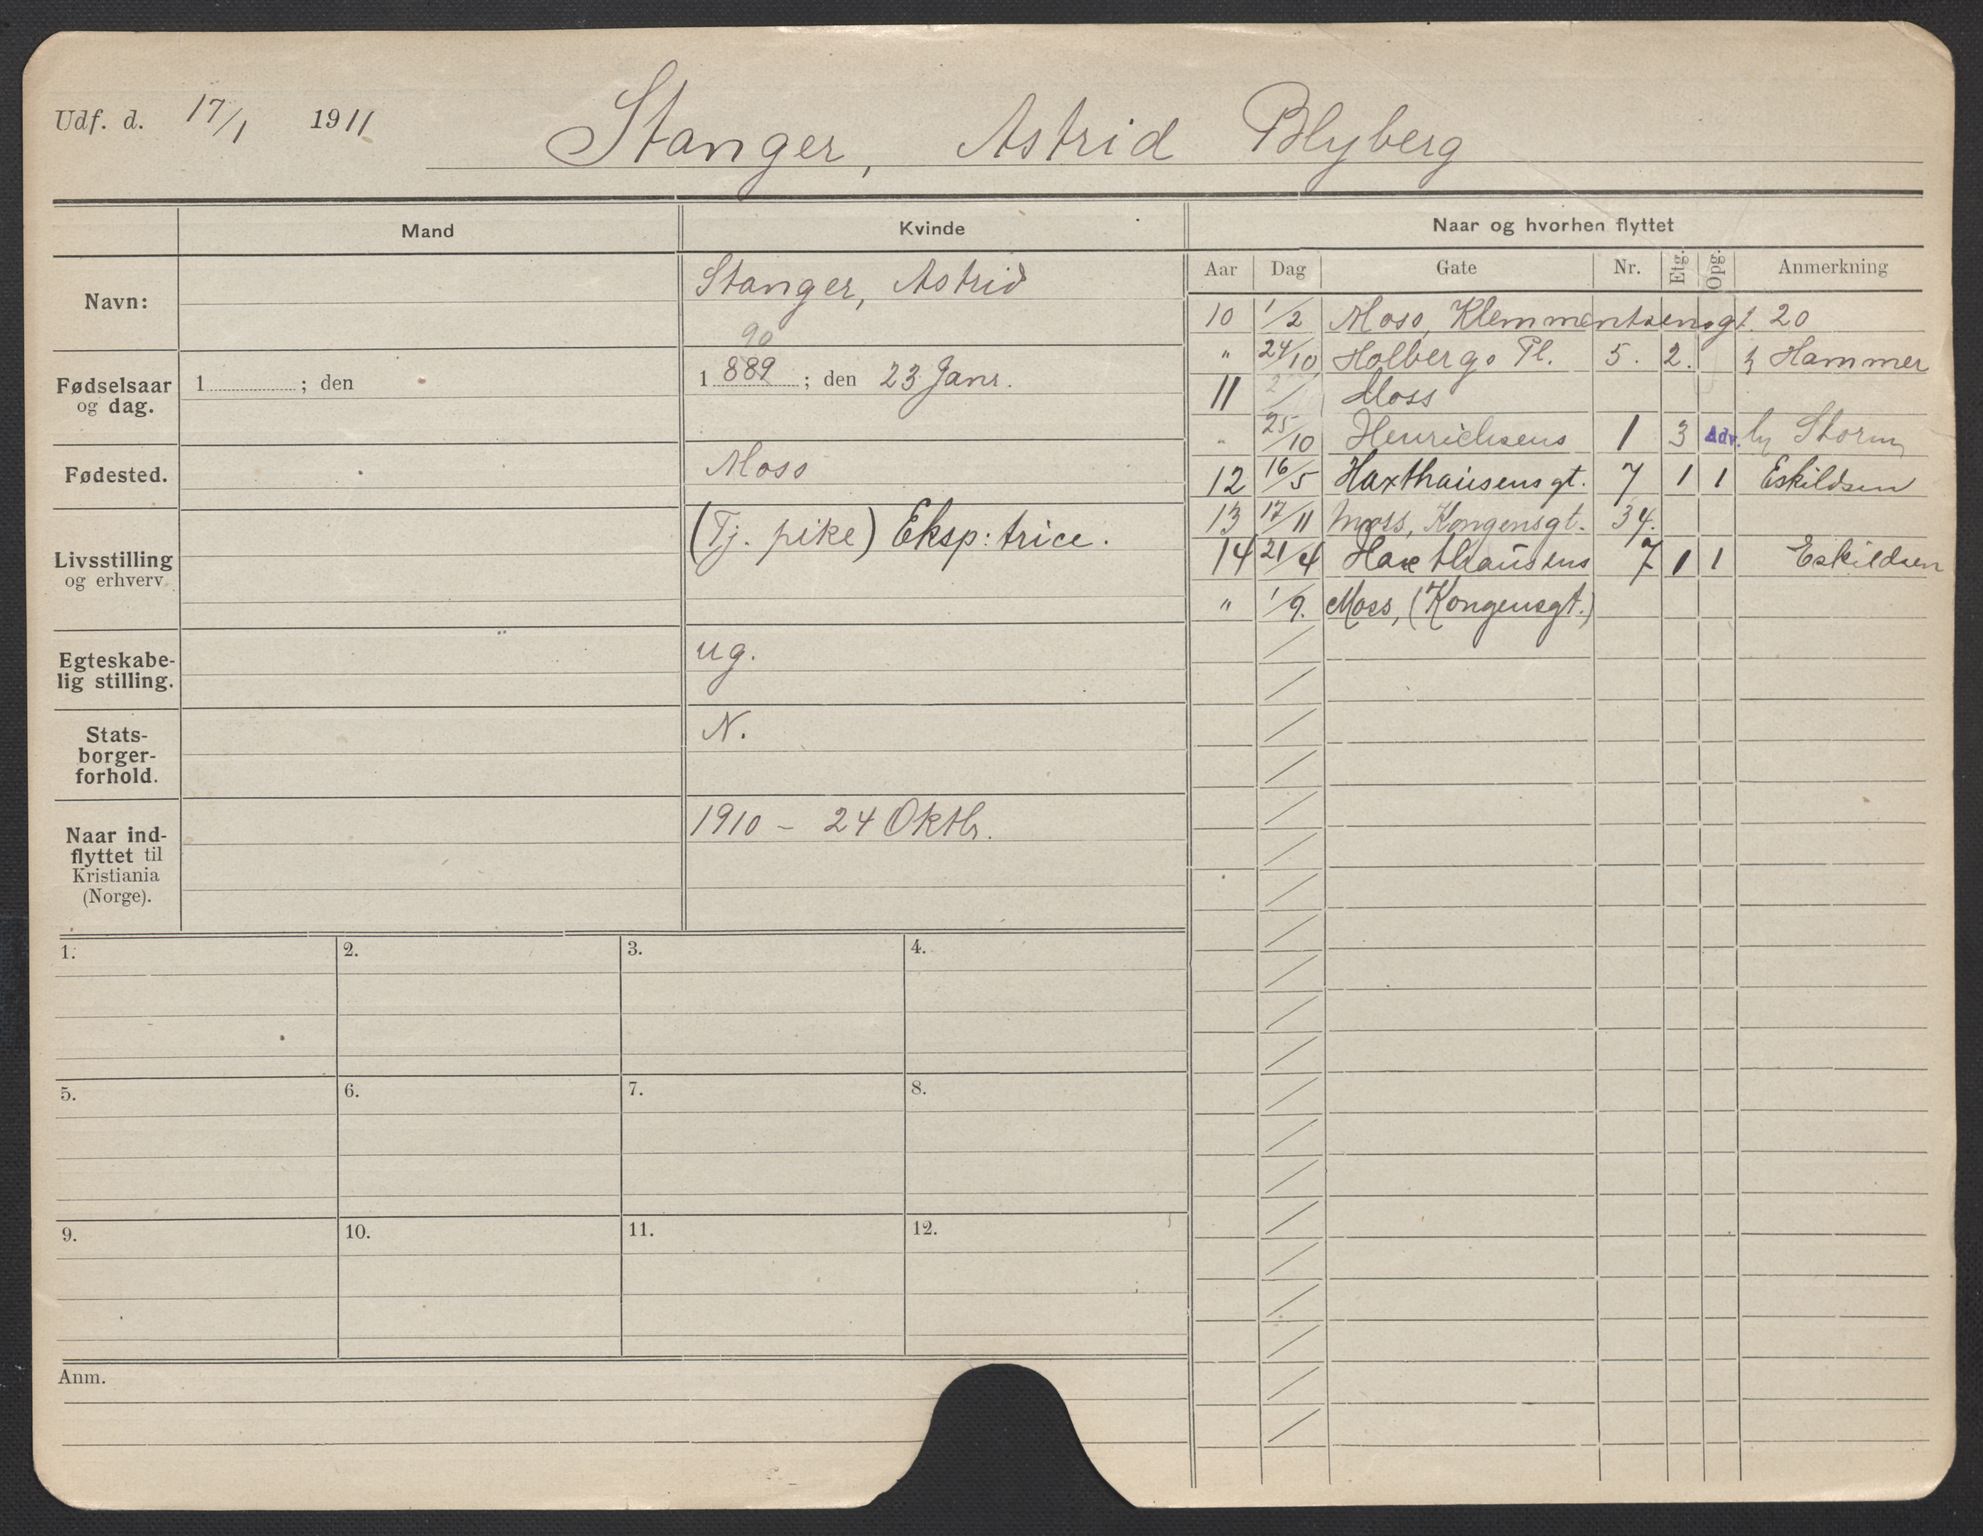 Udf. d. 17/1 1911 Stanger, Astrid Blyberg
Mand Kvinde Naar og hvorhen flyttet
Aar Dag Gate Nr. Etg. Opg. Anmerkning
Navn: Stanger, Astrid
90
Fødselsaar og dag. 1 ; den 1889 ; den 23 Janr.
Fødested. Moss
Livsstilling og erhverv (Tj. pike) Eksp: trice.
Egteskabe-
lig stilling. ug.
Stats-
borger-
forhold. N.
Naar ind-
flyttet til
Kristiania
(Norge). 1910 – 24 Oktbr.
10 1/2 Moss, Klemmentsensgt. 20
" 24/10 Holbergs Pl. 5. 2. Hammer
11 2/ Moss
" 25/10 Henrichsens 1 3 Adv. Storm
12 16/5 Haxthausensgt. 7 1 1 Eskildsen
13 17/11 Moss, Kongensgt. 34.
14 21/4 Haxthausens 7 1 1 Eskildsen
" 1/9. Moss, (Kongensgt.)
1. 2. 3. 4.
5. 6. 7. 8.
9. 10. 11. 12.
Anm.